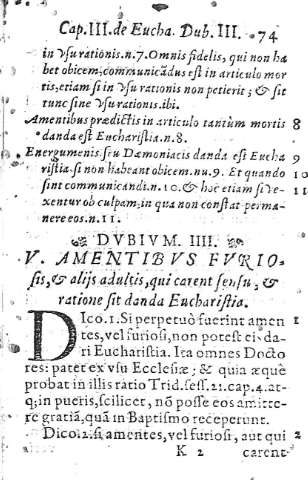 Cap.III.de Eucha. Dub.III. 74
in vsu rationis.n.7. Omnis fidelis, qui non ha
bet obicem, communicādus est in articulo mor
tis, etiam si in vsu rationis non petierit; & sit
tunc sine vsu rationis. ibi.
Amentibus prædictis in articulo tantùm mortis 8
danda est Eucharistia.n.8.
Energumenis. seu Dæmoniacis danda est Eucha 9
ristia si non habeant obicem. nu.9. Et quando 10
sint communicandi.n.10. & hoc etiam si ve- 11
xentur ob culpam, in qua non constat perma-
nere eos.n.11.
DVBIVM. IIII.
V. AMENTIBVS FVRIO-
sis, & alijs adultis, qui carent sensu, &
ratione sit danda Eucharistia.
DIco.1. Si perpetuò fuerint amen 1
tes, vel furiosi, non potest eis da-
ri Eucharistia. Ita omnes Docto
res: patet ex vsu Ecclesiæ; & quia æquè
probat in illis ratio Trid. sess.21.cap.4.at-
q; in pueris, scilicet, nō posse eos amitte-
re gratiā, quā in Baptismo receperunt.
Dico.2. si amentes, vel furiosi, aut qui 2
K 2 carent